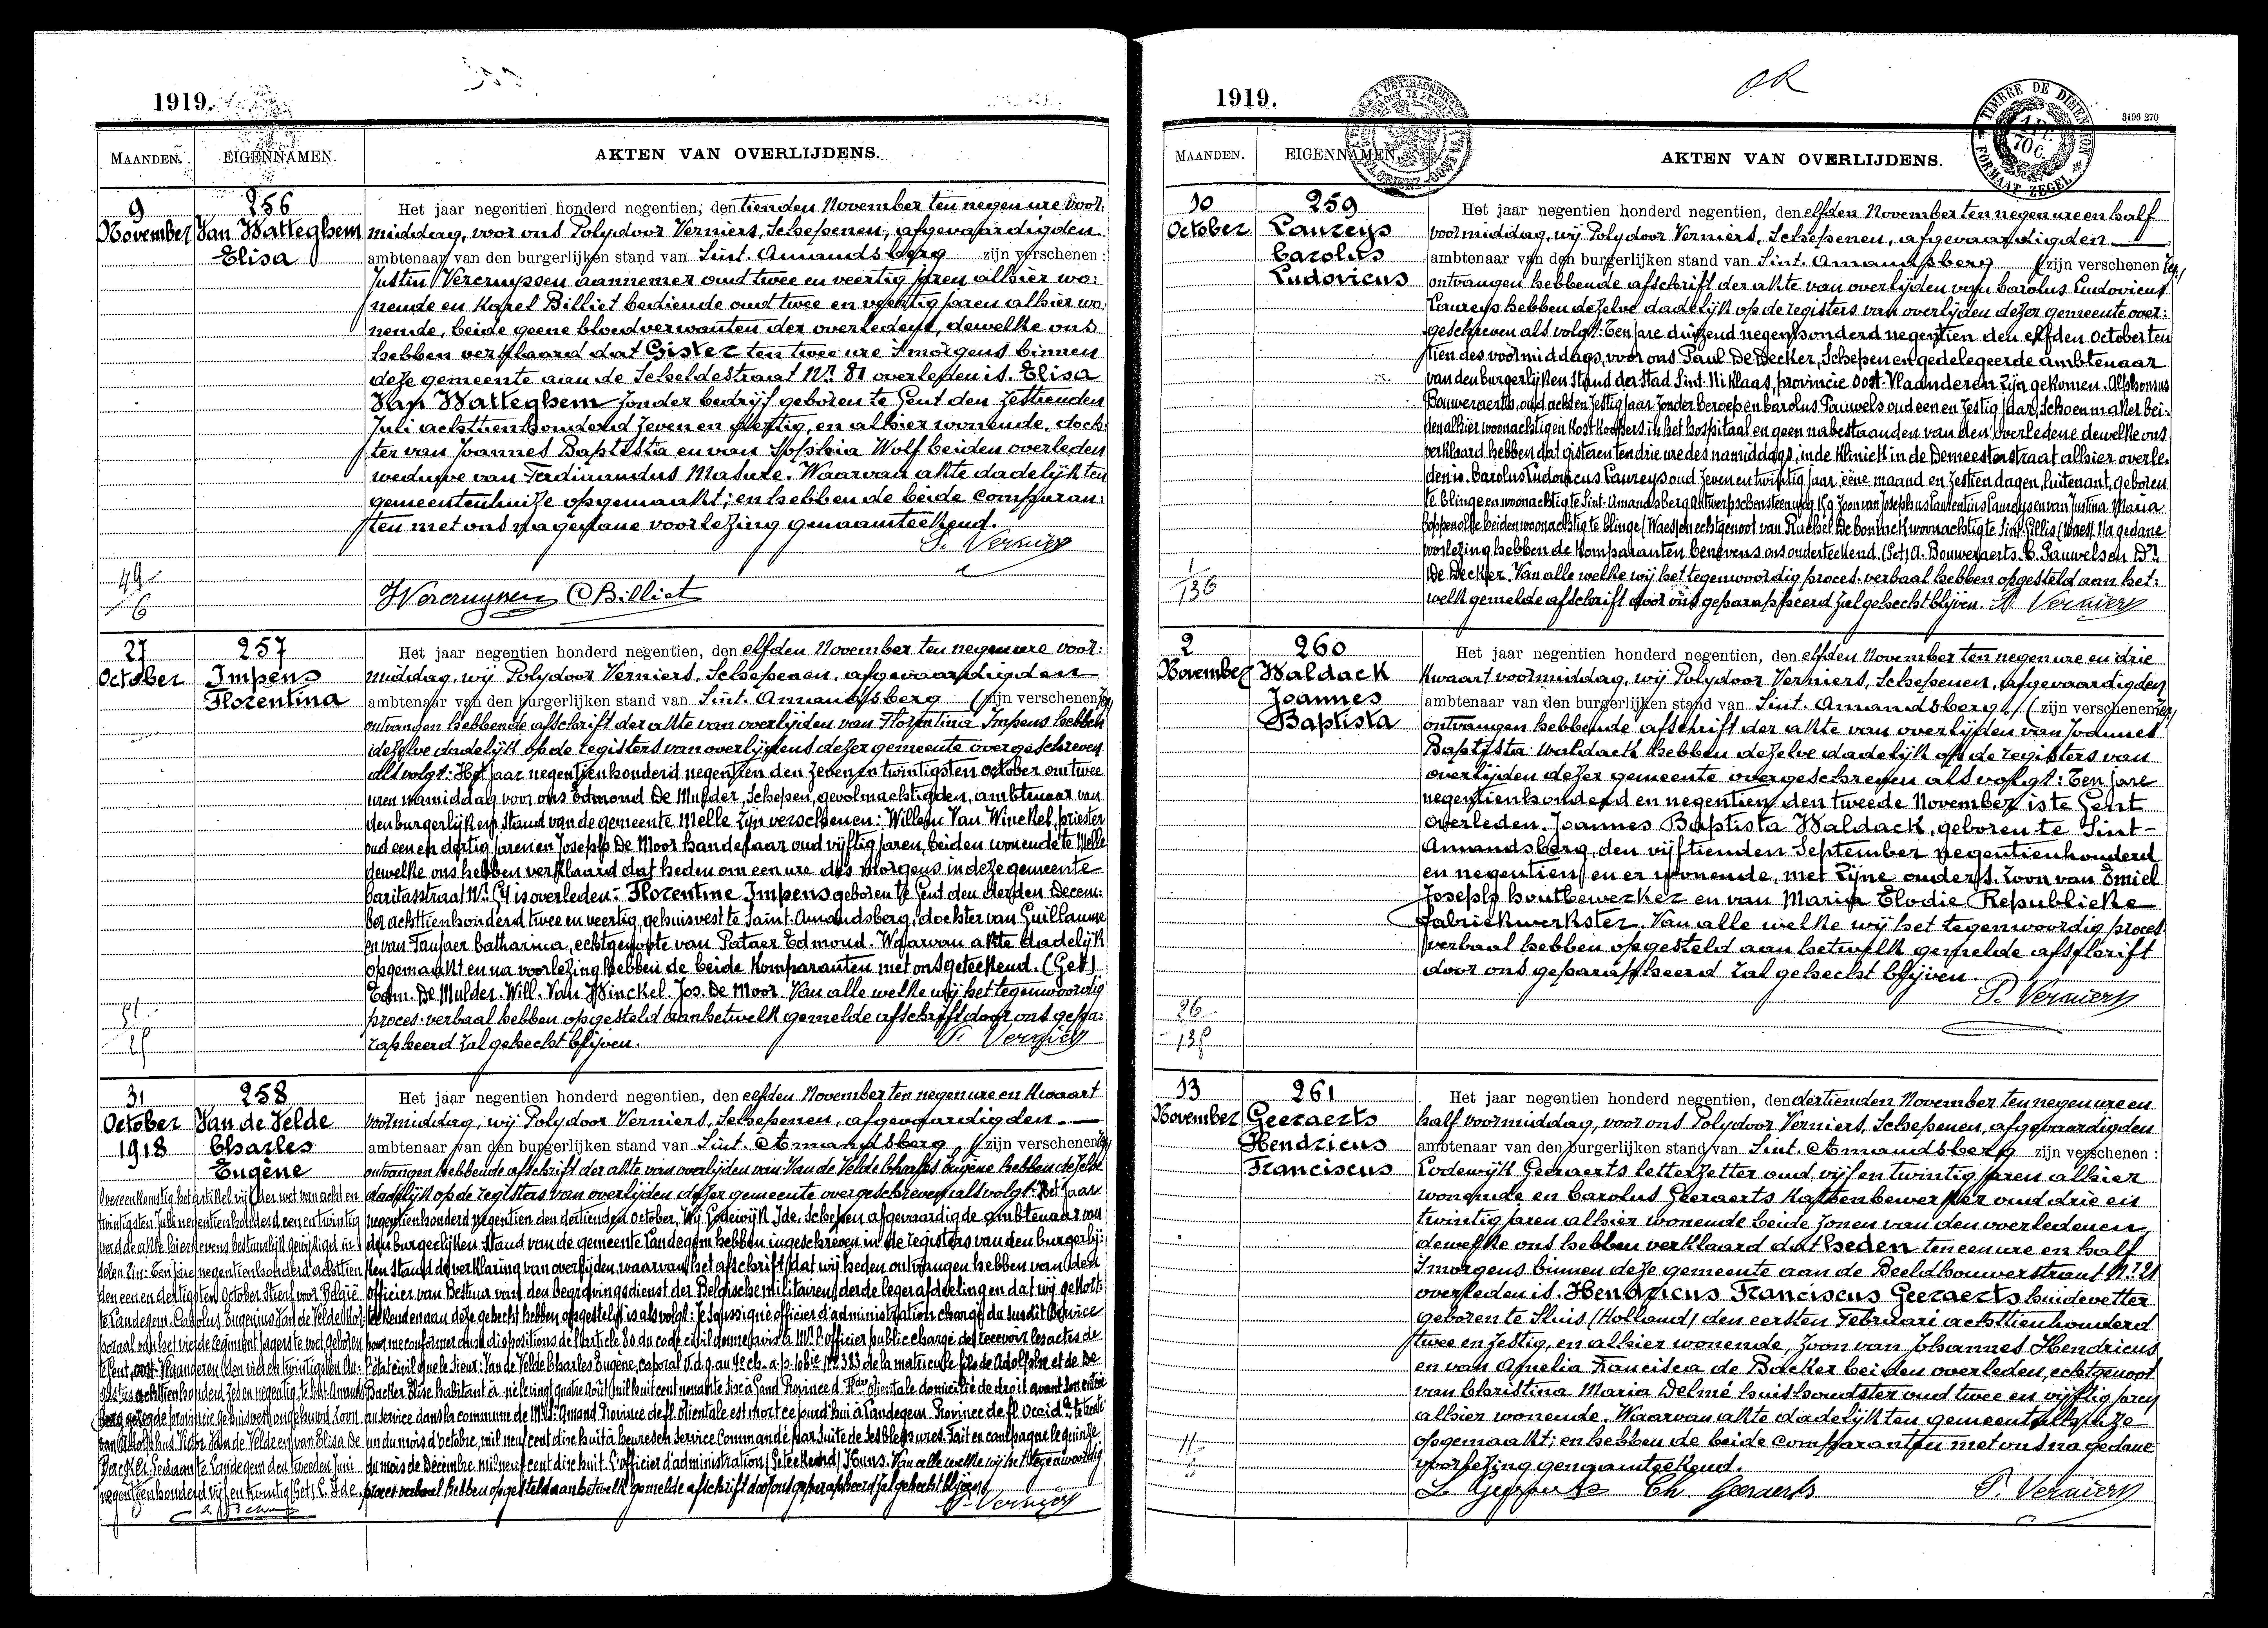 1919.
MAANDEN. EIGENNAMEN. AKTEN VAN OVERLIJDENS.
9 November
256
Van Watteghem
Elisa
Het jaar negentien honderd negentien, den tienden November ten negen ure voor:
middag, voor ons Polydoor Verniers, Schepenen, afgevaardigden
ambtenaar van den burgerlijken stand van Sint. Amandsberg zijn verschenen:
Justin Vercruyssen aannemer oud twee en veertig jaren alhier wo:
nende en Karel Billiet bediende oud twee en veertig jaren alhier wo:
nende, beide geene bloedverwanten der overledene, dewelke ons
hebben verklaard dat Gister ten twee ure 's morgens binnen
deze gemeente aan de Scheldestraat Nr. 81 overleden is. Elisa
Van Watteghem zonder bedrijf geboren te Gent den zestienden
Juli achttienhonderd zeven en en alhier wonende, doch:
ter van Joannes Baptista en van Sophia Wolf beiden overleden
weduwe van Ferdinandus Masure. Waarvan akte dadelijk ten
gemeentenhuize opgemaakt; en hebben de beide comparan:
ten met ons na gedane voorlezing genaamteekend.
P. Verniers
49
6
JVercruyssen CBilliet
27
October
257
Impens
Florentina
Het jaar negentien honderd negentien, den elfden November ten negen ure voor:
middag, wij Polydoor Verniers, Schepenen, afgevaardigden
ambtenaar van den burgerlijken stand van Sint. Amandsberg (zijn verschenen
ontvangen hebbende afschrift der akte van overlijden van Florentina Impens hebben
dezelve dadelijk op de registers van overlijdens dezer gemeente overgeschreven
als volgt: Het jaar negentienhonderd negentien den zeven en twintigsten october om twee
uren namiddag voor ons Edmond De Mulder, Schepen, gevolmachtigden, ambtenaar van
den burgerlijken stand van de gemeente Melle zijn verschenen: Willem Van Winckel, priester
oud een en dertig jaren en Joseph De Moor handelaar oud vijftig jaren, beiden wonende te Melle
dewelke ons hebben verklaard dat heden om een ure des morgens in deze gemeente
Caritasstraat Nr. is overleden: Florentine Impens geboren te Gent den derden Decem:
ber achttienhonderd twee en veertig, gehuisvest te Saint-Amandsberg, dochter van Guillaume
en van Catharina, echtgenoote van Pataer Edmond. Waarvan akte dadelijk
opgemaakt en na voorlezing hebben de beide komparanten met ons geteekend. (Get)
Edm. De Mulder. Will. Van Winckel. Jos. De Moor. Van alle welke wij het tegenwoordig
proces-verbaal hebben opgesteld aan hetwelk gemelde afschrift door ons gepa:
rapheerd zal gehecht blijven. P. Verniers
31
October
1918
258
Van de Velde
Charles
Eugène
Het jaar negentien honderd negentien, den elfden November ten negen ure en kwaart
voormiddag, wij Polydoor Verniers, Schepenen, afgevaardigden
ambtenaar van den burgerlijken stand van Sint. Amandsberg (zijn verschenen
ontvangen hebbende afschrift der akte van overlijden van Van de Velde Charles Eugène hebben dezelve
dadelijk op de registers van overlijden dezer gemeente overgeschreven als volgt: Het jaar
negentienhonderd negentien den dertienden october, Wij Lodewijk Ide, Schepen afgevaardigde ambtenaar van
den burgerlijken stand van de gemeente Landegem hebben ingeschreven in de registers van den burgerlij:
ken stand de verklaring van overlijden waarvan het afschrift dat wij heden ontvangen hebben van den
officier van Bestuur van den begravingsdienst der Belgische militairen derde legerafdeeling en dat wij gekort:
teekend aan deze gehecht hebben opgesteld is als volgt: Je soussigné officier d'administration chargé du susdit service
pour me conformer aux dispositions de l'article 80 du code civil donne avis à Mr. l'officier public chargé de recevoir les actes de
l'état civil que le sieur: Van de Velde Charles Eugène, caporal
Backer Elise habitant à né le vingt quatre août mil huit cent nonante six à Gand Province d'Fl. Orientale domicilié de droit avant son entrée
au service dans la commune de Mt. St. Amand Province de fl. Orientale est mort ce jourd'hui à Landegem. Province de fl. Occid. le trente
un du mois d'octobre, mil neuf cent dix huit à heures en service Commandé par suite de ses blessures. Fait en campagne le quinze
du mois de Décembre mil neuf cent dix huit. L'officier d'administration (Geteekend) Huns. Van alle welke wij het tegenwoordig
proces verbaal hebben opgesteld aan hetwelk gemelde afschrift door ons geparapheerd zal gehecht blijven
P. Verniers
Overeenkomstig het artikel vijf der wet van acht en
twintigsten Juli negentienhonderd een en twintig
werd de akte hiernevens bestandlijk gewijzigd in
dezen zin: Ten jare negentienhonderd achttien
den een en dertigsten October stierf voor België
te Landegem. Carolus Eugenius Van de Velde Kor:
poraal van het vierde regiment jagers te voet geboren
te Gent, oost-Vlaanderen den vier en twintigsten Au:
gustus achttienhonderd zes en negentig, te Sint Amands
berg gezegde provincie gehuisvest ongehuwd zoon
van Adolphus Victor Van de Velde en van Elisa De
Backer. Gedaan te Landegem den tweeden Juni
negentienhonderd vijf en twintig (Get) L. Ide.
1919.
OR
TIMBRE DE DIMENSION
FORMAAT ZEGEL
3196 270
MAANDEN. EIGENNAMEN. AKTEN VAN OVERLIJDENS.
10
October
259
Laureys
Carolus
Ludovicus
Het jaar negentien honderd negentien, den elfden November ten negen ure en half
voormiddag, wij Polydoor Verniers, Schepenen, afgevaardigden
ambtenaar van den burgerlijken stand van Sint. Amandsberg (zijn verschenen
ontvangen hebbende afschrift der akte van overlijden van Carolus Ludovicus
Laureys hebben dezelve dadelijk op de registers van overlijden dezer gemeente over:
geschreven als volgt: Ten jare duizend negenhonderd negentien den elfden October ten
tien des voormiddags, voor ons Paul De Decker, Schepen en gedelegeerde ambtenaar
van den burgerlijken stand der stad Sint-Niklaas, provincie Oost-Vlaanderen zijn gekomen. Alphonsus
Bouweraerts, oud acht en zestig jaar zonder beroep en Carolus Pauwels oud een en zestig jaar, schoenmaker bei:
den alhier woonachtig en kostkoopers in het hospitaal en geen nabestaanden van den overledene dewelke ons
verklaard hebben dat gisteren ten drie ure des namiddags, in de kliniek in de Demeesterstraat alhier overle:
den is. Carolus Ludovicus Laureys oud zeven en twintig jaar, eene maand en zestien dagen, luitenant, geboren
te Clinge en woonachtig te Sint-Amandsberg Antwerpschensteenweg Zoon van Josephus Laurentius Laureys en van Justina Maria
beiden woonachtig te Clinge (Waes) en echtgenoot van Rachel De Coninck woonachtig te Sint-Gillis (Waes). Na gedane
voorlezing hebben de komparanten benevens ons onderteekend. (Get) A. Bouweraerts. C. Pauwels en
De Decker. Van alle welke wij het tegenwoordig proces-verbaal hebben opgesteld aan het:
welk gemelde afschrift door ons geparapheerd zal gehecht blijven. P. Verniers
1
136
2
November
260
Waldack
Joannes
Baptista
Het jaar negentien honderd negentien, den elfden November ten negen ure en drie
kwaart voormiddag, wij Polydoor Verniers, Schepenen, afgevaardigden
ambtenaar van den burgerlijken stand van Sint. Amandsberg (zijn verschenen
ontvangen hebbende afschrift der akte van overlijden van Joannes
Baptista Waldack hebben dezelve dadelijk op de registers van
overlijden dezer gemeente overgeschreven als volgt: Ten jare
negentienhonderd en negentien den tweede November is te Gent
overleden. Joannes Baptista Waldack, geboren te Sint-
Amandsberg, den vijftienden September negentienhonderd
en negentien en er wonende, met zijne ouders. Zoon van Emiel
Joseph houtbewerker en van Maria Elodie Republieke
fabriekwerkster. Van alle welke wij het tegenwoordig proces
verbaal hebben opgesteld aan hetwelk gemelde afschrift
door ons geparapheerd zal gehecht blijven.
P. Verniers
26
13
November
261
Geeraerts
Hendricus
Franciscus
Het jaar negentien honderd negentien, den dertienden November ten negen ure en
half voormiddag, voor ons Polydoor Verniers, Schepenen, afgevaardigden
ambtenaar van den burgerlijken stand van Sint. Amandsberg zijn verschenen:
Lodewijk Geeraerts letterzetter oud vijf en twintig jaren alhier
wonende en Carolus Geeraerts oud drie en
twintig jaren alhier wonende beide zonen van den overledenen,
dewelke ons hebben verklaard dat heden ten een ure en half
'smorgens binnen deze gemeente aan de Beeldhouwerstraat Nr. 21
overleden is. Hendricus Franciscus Geeraerts huidevetter
geboren te Sluis (Holland) den eersten Februari achttienhonderd
twee en zestig, en alhier wonende, zoon van Johannes Hendricus
en van Amelia Francisca de Backer beiden overleden, echtgenoot
van Christina Maria Delmé huishoudster oud twee en vijftig jaren
alhier wonende. Waarvan akte dadelijk ten gemeentehuize
opgemaakt; en hebben de beide comparanten met ons na gedane
voorlezing genaamteekend.
L Geeraerts Ch. Geeraerts P. Verniers
11